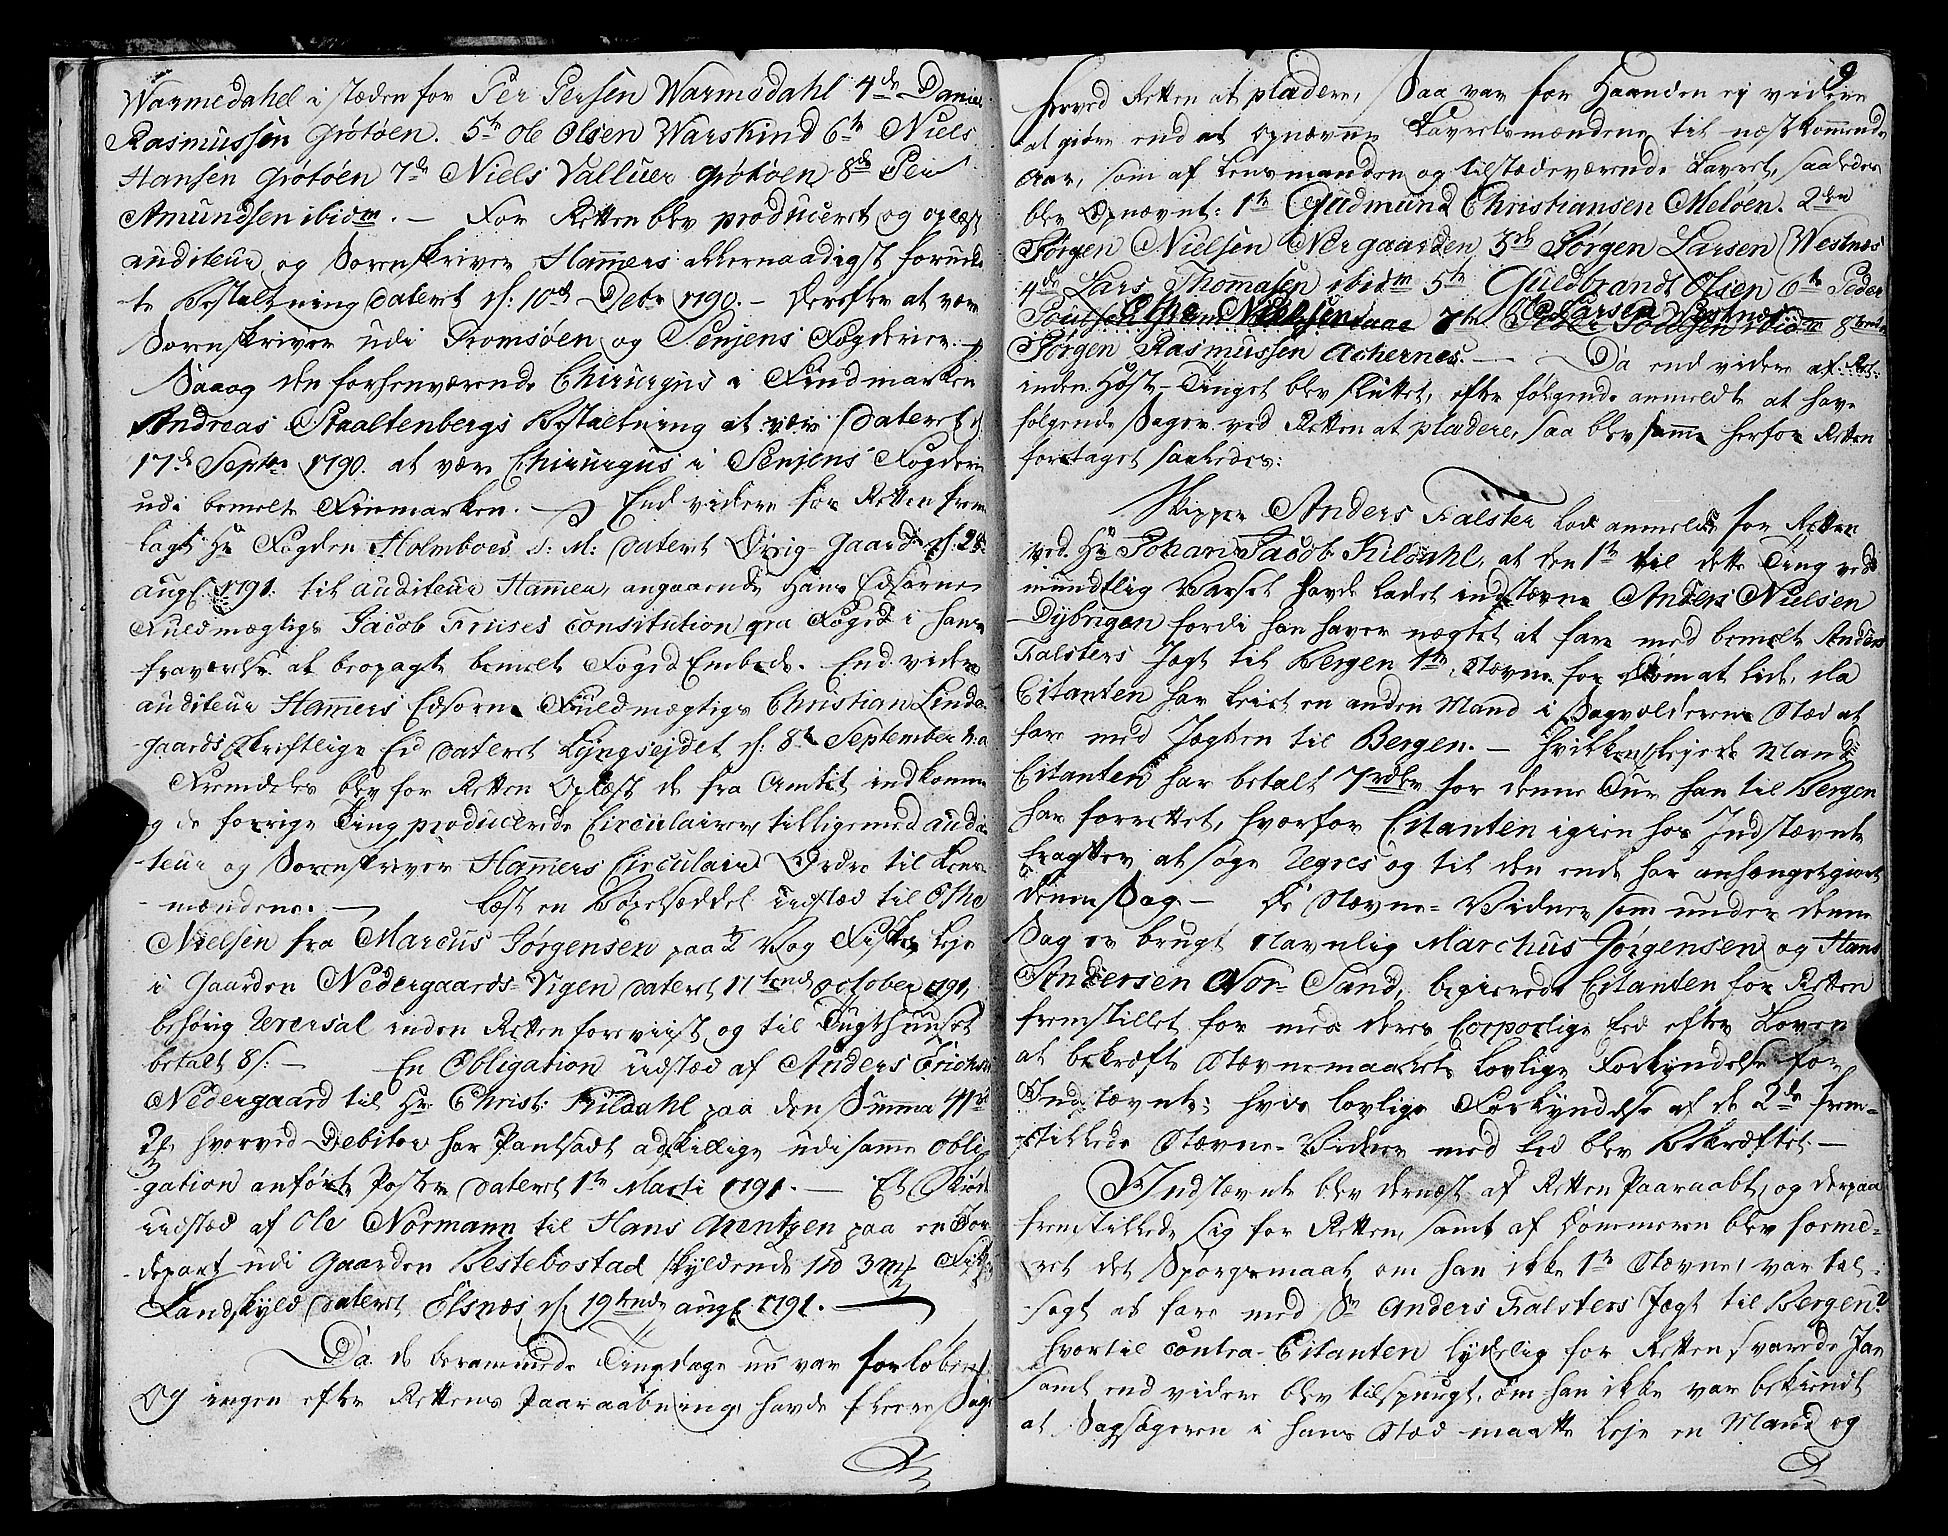 Warmedahl i stæden for Per Persen Warmedahl 4de Daniel
Rasmussen Grøtøen. 5te Ole Olsen Warskind 6te Niels
Hansen Grøtøen 7de Niels Valluer Grøtøen 8de Per
Amundsen ibidm. — For Retten blev produceret og oplæst
auditeur og Sorenskriver Hamers allernaadigst forundt
te Bestaltning dateret d: 10de Debr 1790. — derefter at være
Sorenskriver udi Tromsøen og Senjens Fogderier. —
Saaog den forhenværende Chirurgus i Findmarken
Andreas Staaltenbergs Bestaltning at være dateret d
17de Septr 1790. at være Chirurgus i Senjens Fogderie
udi bemelte Finmarken. — End videre for Retten frem
lagt Hr Fogden Holmboes S: M: dateret Øvrig-gaard d: 25
augs 1791. til auditeur Hamer, angaaende Hans Edsorne
Fuldmægtigs Jacob Friises Constitution qua Foged i hans
fraværelse at beopagte bemelte Foged Embede. End videre
auditeur Hamers Edsorne Fuldmægtigs Christian Linde
gaards skriftlige Eed dateret Lyngseydet d: 8de September h: a
Fremdeles blev for Retten Oplæst de fra Amtet indkomne
og de forrige Ting producerede Circulairer, tilligemed audi
teur og Sorenskriver Hamers Circulair Ordre til Lens
mændene. — Læst en Bøxelseddel udstæd til Otho
Nielsen fra Marcus Jørgensen paa ½ Vog Fiskes Leje
i Gaarden Nedergaards-Vigen dateret 17tende october 1791,
behørig Reversal inden Retten foreviist og til Tugthuuset
betalt 8 s: — En Obligation udstæd af Anders Erichsen
Nedergaard til Hr Christ: Kildahl paa den Summa 41 rd
2 hvorved Debitor har Pantsadt adskillige udi samme obli
gation anførte Poster dateret 1te Marti 1791. — Et Skiøde
udstæd af Ole Normann til Hans Mentzen paa en Jor
depart udi Gaarden Bestebostad skyldende 1 pd 3 mk Fiske
Landskyld dateret Elsnæs d: 19tende augs 1791. —
Da de berammede Tingdage nu var forløben
Og ingen efter Rettens Paaraabning havde fleere Sage
9
herved Retten at pladere, Saa var for Haanden ej videre
at giøre end at Opnævne Lavrettesmændene til næstkommende
Aar, som af Lensmanden og tilstædeværende Lavret, saaledes
blev Opnævnt: 1te Gudmund Christiansen Meløen. 2den
Jørgen Nielsen Nergaarden, 3de Jørgen Larsen Westnæs
4de Lars Thomasen ibidm 5te Guldbrandt Olsen 6te Peder
Otho Nielsen 7de Ole Larsen Westnæs 8tende
Jørgen Rasmussen Achernes. — Da end videre af Ret.
inden Høst-Tinget blev sluttet, efter følgende anmeldte at have
følgende Sager ved Retten at pladere, saa blev samme herfor Retten
foretaget saaledes:
Skipper Anders Falster lod anmelde for Retten
ved Hr Johan Jacob Kildahl, at den 1te til dette Ting ved
mundtlig Varsel havde ladet indstævne Anders Nielsen
Dybvigen fordi han haver nægtet at fare med bemelte Anders
Falsters Jægt til Bergen 1te Stævne for dom at lide, da
Citanten har leiet en anden Mand i Sagvolderens Stæd at
fare med Jægten til Bergen. — hvilken leiede Mand
Citanten har betalt 7 rdlr for denne Tur han til Bergen
har forrettet, hvorfor Citanten igien hos Indstævnte
tragter at søge Regres og til den ende har anhængetgiort
denne Sag — De Stævne-Vidner som under denne
Sag er brugt navnlig Marchus Jørgensen og Hans
Andersen Nor-Sand, begierede Citanten for Retten
fremstillet for med deres Corporlige Eed efter Loven
at bekræfte Stævnemaalets Lovlige Forkyndelse for
Indstævnte; hvis lovlige Forkyndelse af de 2de frem-
stillede Stævne-Vidner med Eed blev Bekræftet —
Indstævnte blev dernæst af Retten Paaraabt, og derpaa
fremstillede sig for Retten, samt af Dommeren blev forme-
ret det Spørgsmaal om han ikke 1te Stævne var til-
sagt at fare med Sr Anders Falsters Jægt til Bergen?
hvortil contra-Citanten lydelig for Retten svarede Ja
samt end videre blev tilspurgt, om han ikke var bekiendt
at Sagsøgeren i hans Stæd maatte leje en Mand og